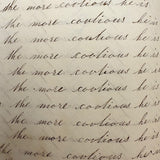 the more cautious he is.
the more cautious he is
the more cautious he is
the more cautious he is
the more cautious he is
the more cautious he is
the more cautious he is
the more cautious he
the more cautious